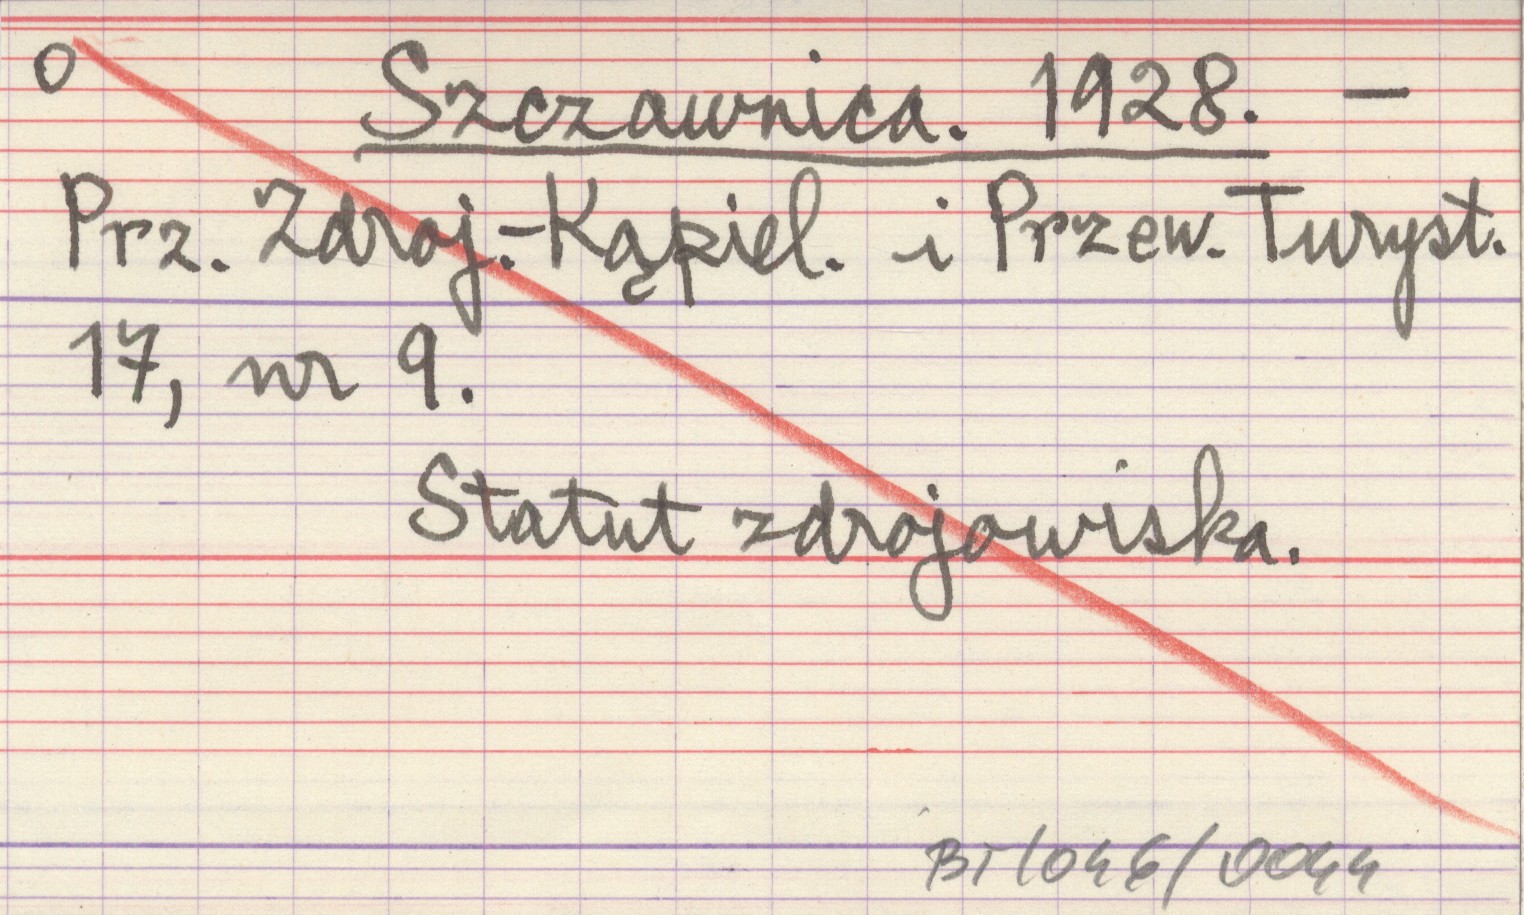 O Szczawnica. 1928. —
Prz. Zdroj.-Kąpiel. i Przew. Turyst.
17, nr 9.
Statut zdrojowiska.
BT/046/0044